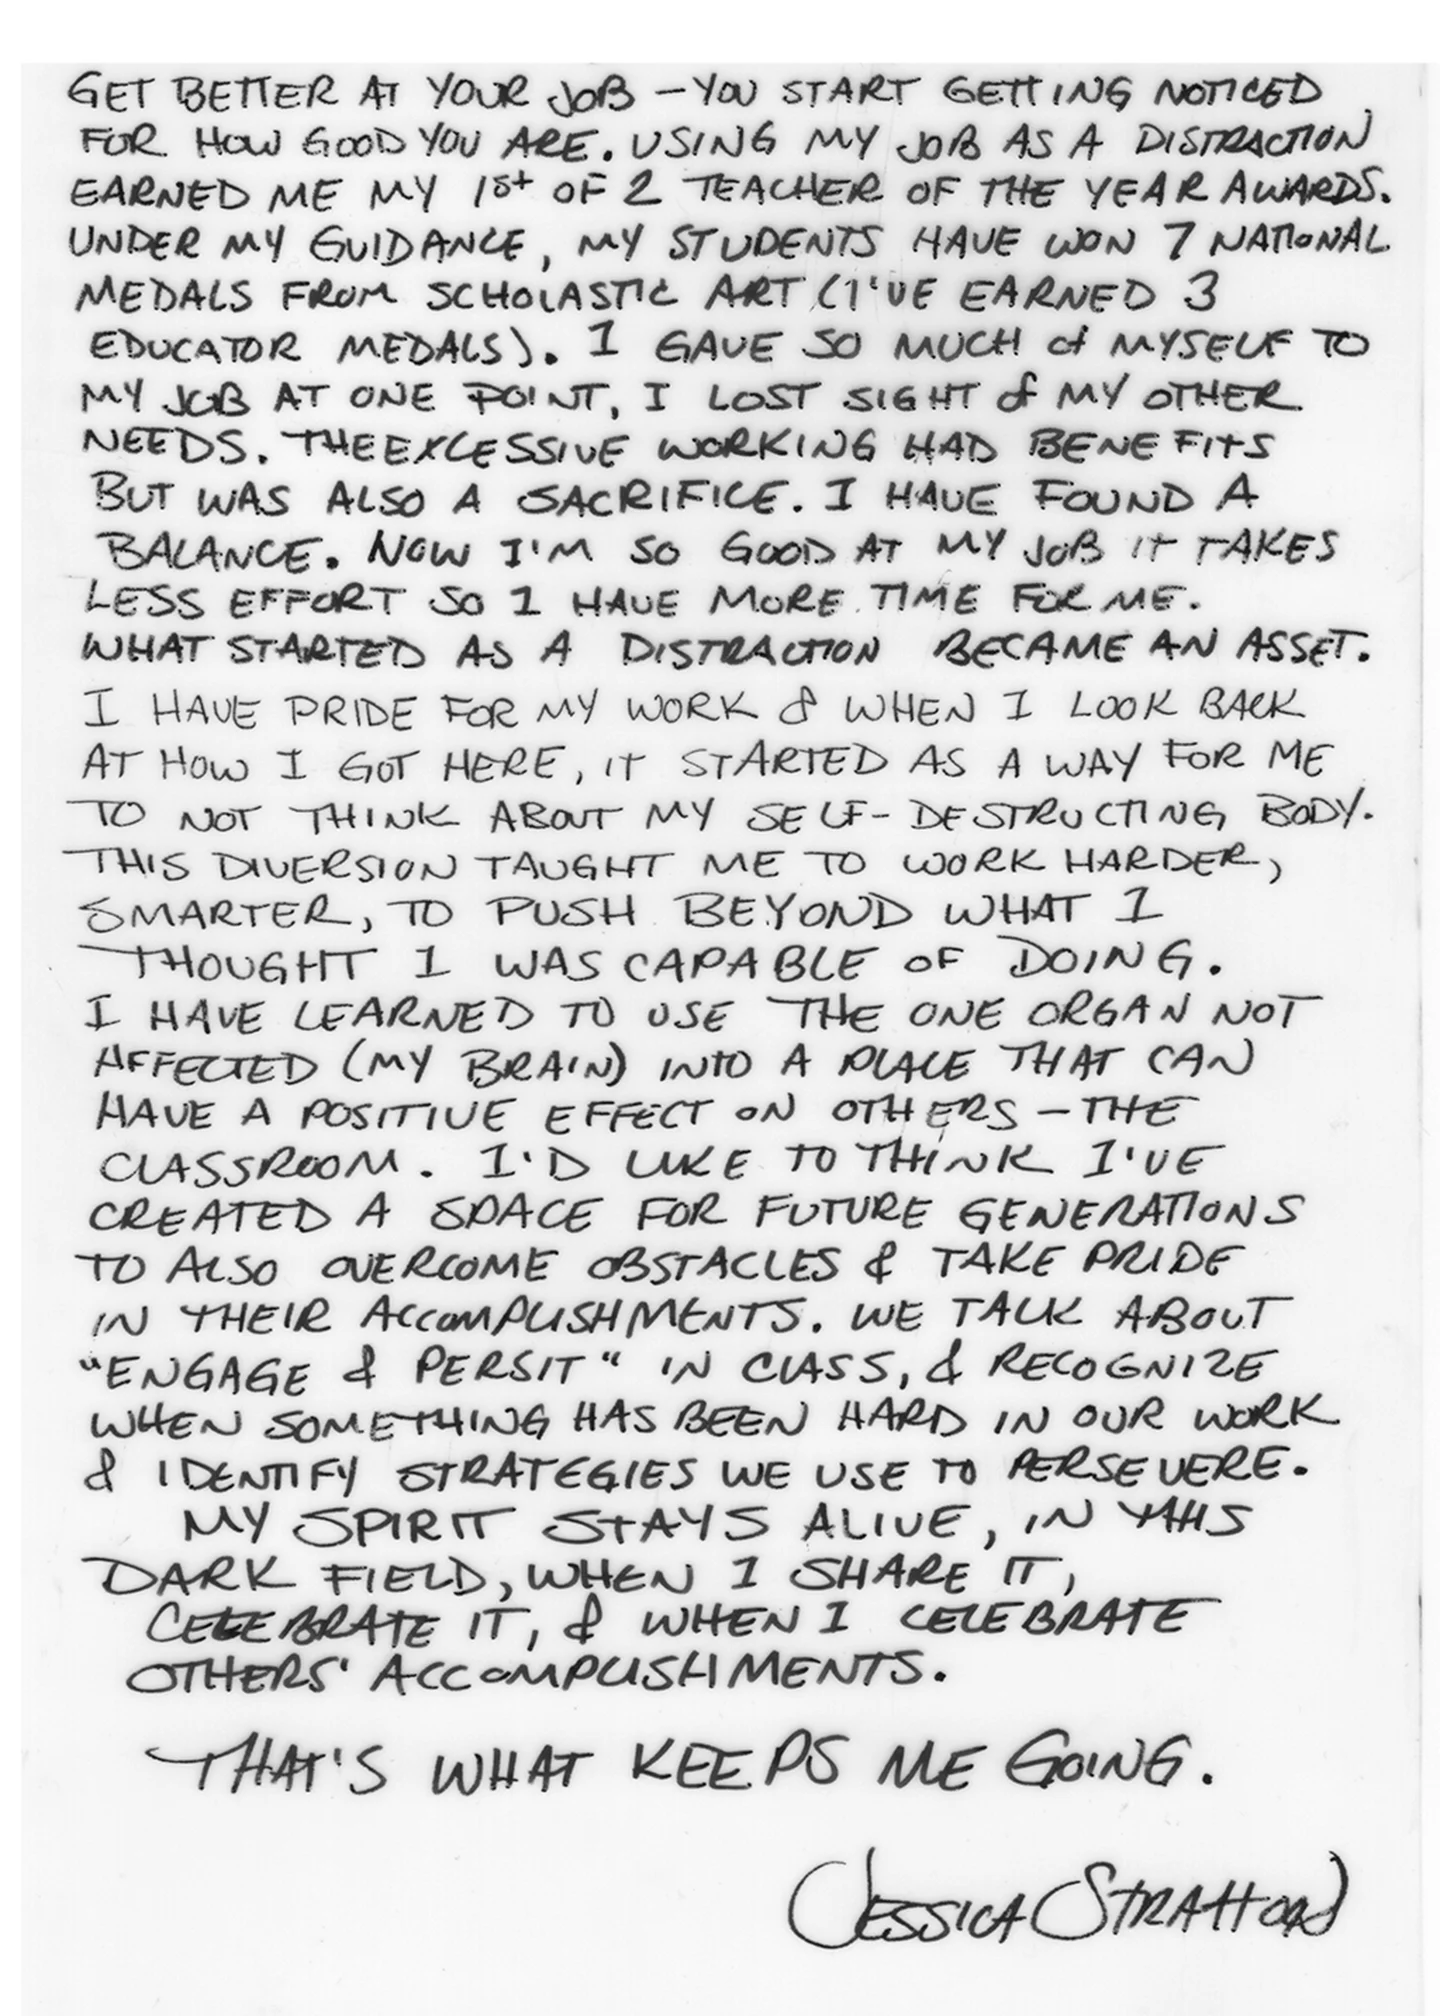 GET BETTER AT YOUR JOB – YOU START GETTING NOTICED
FOR HOW GOOD YOU ARE. USING MY JOB AS A DISTRACTION
EARNED ME MY 1st OF 2 TEACHER OF THE YEAR AWARDS.
UNDER MY GUIDANCE, MY STUDENTS HAVE WON 7 NATIONAL
MEDALS FROM SCHOLASTIC ART (I'VE EARNED 3
EDUCATOR MEDALS). I GAVE SO MUCH of MYSELF TO
MY JOB AT ONE POINT, I LOST SIGHT of MY OTHER
NEEDS. THE EXCESSIVE WORKING HAD BENEFITS
BUT WAS ALSO A SACRIFICE. I HAVE FOUND A
BALANCE. NOW I'M SO GOOD AT MY JOB IT TAKES
LESS EFFORT SO I HAVE MORE TIME FOR ME.
WHAT STARTED AS A DISTRACTION BECAME AN ASSET.
I HAVE PRIDE FOR MY WORK & WHEN I LOOK BACK
AT HOW I GOT HERE, IT STARTED AS A WAY FOR ME
TO NOT THINK ABOUT MY SELF-DESTRUCTING BODY.
THIS DIVERSION TAUGHT ME TO WORK HARDER,
SMARTER, TO PUSH BEYOND WHAT I
THOUGHT I WAS CAPABLE OF DOING.
I HAVE LEARNED TO USE THE ONE ORGAN NOT
AFFECTED (MY BRAIN) INTO A PLACE THAT CAN
HAVE A POSITIVE EFFECT ON OTHERS – THE
CLASSROOM. I'D LIKE TO THINK I'VE
CREATED A SPACE FOR FUTURE GENERATIONS
TO ALSO OVERCOME OBSTACLES & TAKE PRIDE
IN THEIR ACCOMPLISHMENTS. WE TALK ABOUT
"ENGAGE & PERSIT" IN CLASS, & RECOGNIZE
WHEN SOMETHING HAS BEEN HARD IN OUR WORK
& IDENTIFY STRATEGIES WE USE TO PERSEVERE.
MY SPIRIT STAYS ALIVE, IN THIS
DARK FIELD, WHEN I SHARE IT,
CELEBRATE IT, & WHEN I CELEBRATE
OTHERS' ACCOMPLISHMENTS.
THAT'S WHAT KEEPS ME GOING.
JESSICA STRATTON